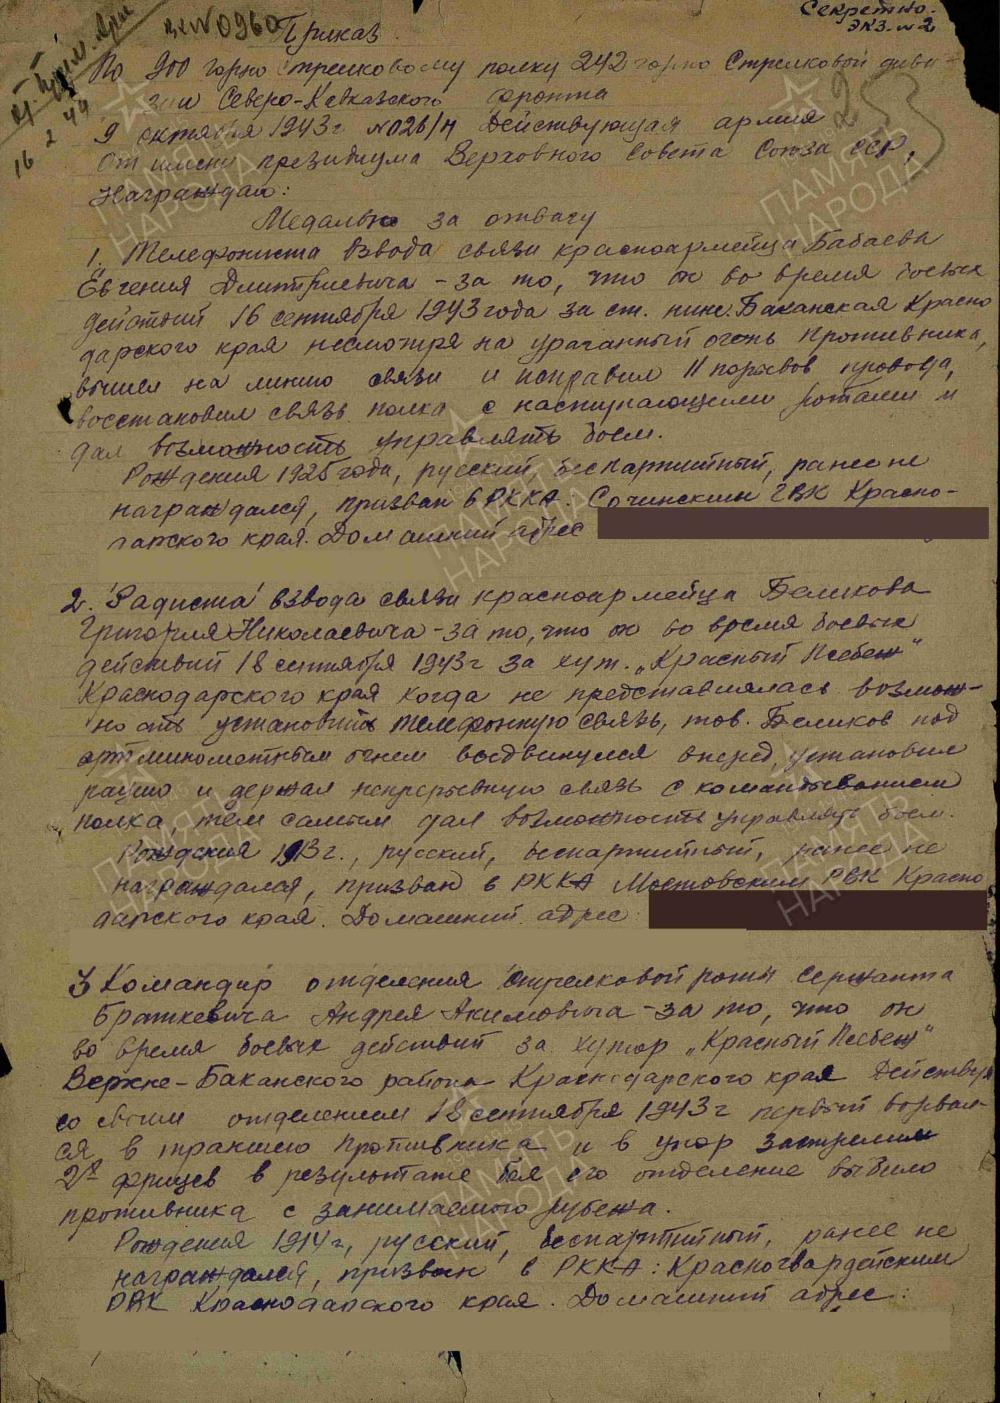 Секретно.
экз. №2
вх№0960
16 2 44
Приказ.
По 900 горно стрелковому полку 242 горно Стрелковой диви
зии Северо-Кавказского фронта
9 октября 1943г №026/н Действующая армия
От имени президиума Верховного Совета Союза ССР,
Награждаю:
Медалью за отвагу
1. Телефониста взвода связи красноармейца Бабаева
Евгения Дмитриевича - за то, что он во время боевых
действий 16 сентября 1943 года за ст. ниж. Баканская Красно
дарского края несмотря на ураганный огонь противника,
вышел на линию связи и исправил 11 порывов провода,
восстановил связь полка с наступающими ротами и
дал возможность управлять боем.
Рождения 1925 года, русский, беспартийный, ранее не
награждался, призван в РККА: Сочинским ГВК Красно-
дарского края. Домашний адрес
2. Радиста взвода связи красноармейца Беликова
Григория Николаевича - за то, что он во время боевых
действий 18 сентября 1943г за хут. „Красный Псебеш"
Краснодарского края когда не представлялась возмож-
ность установить телефонную связь, тов. Беликов под
артминометным огнем выдвинулся вперед, установил
рацию и держал непрерывную связь с командованием
полка, тем самым дал возможность управлять боем.
Рождения 1913г., русский, беспартийный, ранее не
награждался, призван в РККА Мостовским РВК Красно
дарского края. Домашний адрес:
3 Командир отделения стрелковой роты сержанта
Браткевича Андрея Акимовича - за то, что он
во время боевых действий за хутор „Красный Псебеш"
Верхне-Баканского района Краснодарского края Действуя
со своим отделением 18 сентября 1943г первый ворвал-
ся в траншею противника и в упор застрелил
2х фрицев в результате боя его отделение выбило
противника с занимаемого рубежа.
Рождения 1914г, русский, беспартийный, ранее не
награждался, призван в РККА: Красногвардейским
РВК Краснодарского края. Домашний адрес:
ПАМЯТЬ
НАРОДА